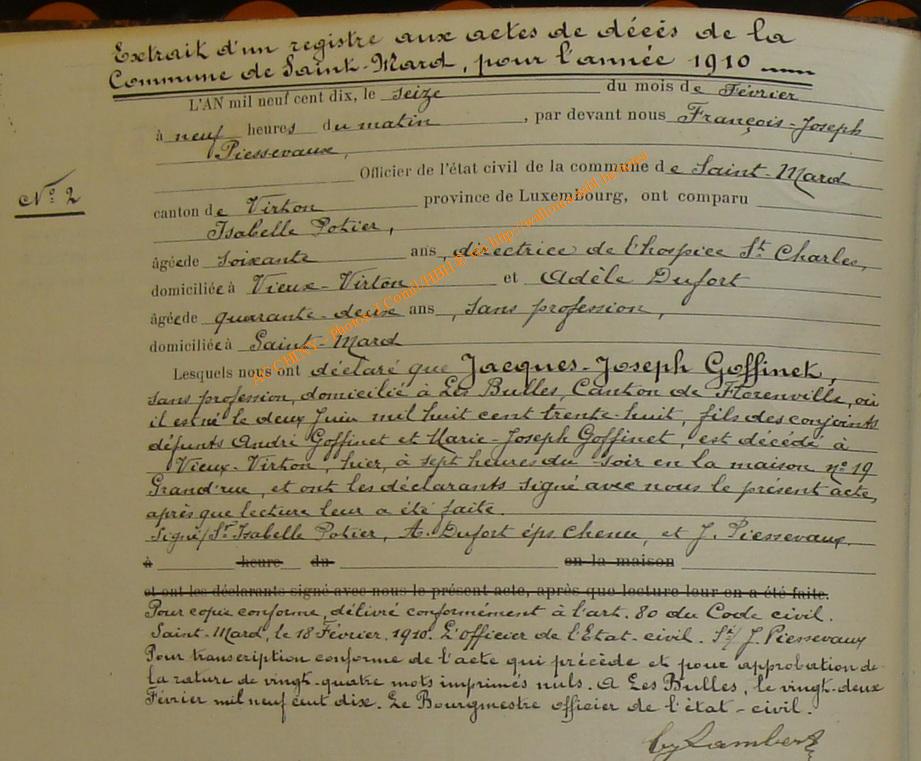 Extrait d'un registre aux actes de décès de la
Commune de Saint-Mard, pour l'année 1910
L'AN mil neuf cent dix, le seize du mois de Février
à neuf heures du matin, par devant nous François-Joseph
Piessevaux,
Officier de l'état civil de la commune de Saint-Mard
N° 2
canton de Virton province de Luxembourg, ont comparu
Isabelle Pohier,
âgée de soixante ans, directrice de l'hospice St Charles,
domiciliée à Vieux-Virton et Adèle Dufort
âgée de quarante-deux ans, sans profession,
domiciliée à Saint-Mard
Lesquels nous ont déclaré que Jacques-Joseph Goffinet,
sans profession, domicilié à Les Bulles, Canton de Florenville, où
il est né le deux Juin mil huit cent trente-huit, fils des conjoints
défunts André Goffinet et Marie-Joseph Goffinet, est décédé à
Vieux-Virton, hier, à sept heures du soir en la maison n° 19
Grand'rue, et ont les déclarants signé avec nous le présent acte,
après que lecture leur a été faite.
Signé/ Sr Isabelle Pohier, A. Dufort éps. Chenu, et J. Piessevaux.
à heure du en la maison
et ont les déclarants signé avec nous le présent acte, après que lecture leur en a été faite.
Pour copie conforme, délivré conformément à l'art. 80 du Code civil.
Saint-Mard, le 18 Février 1910. L'officier de l'Etat-civil. St/ J. Piessevaux
Pour transcription conforme de l'acte qui précède et pour approbation de
la rature de vingt-quatre mots imprimés nuls. A Les Bulles, le vingt-deux
Février mil neuf cent dix. Le Bourgmestre officier de l'état-civil.
Lambert